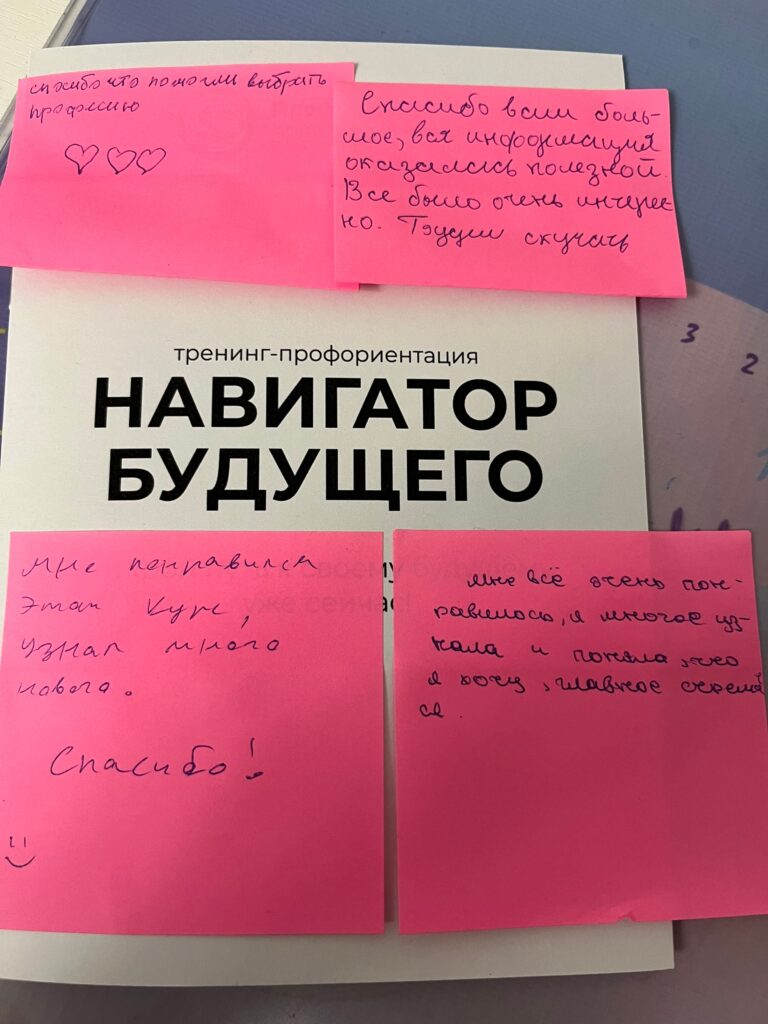 спасибо что помогли выбрать
профессию
Спасибо вам боль-
шое, вся информация
оказалась полезной.
Все было очень интерес-
но. скучать
3
2
тренинг-профориентация
НАВИГАТОР
БУДУЩЕГО
своему будущ
уже сейчас!
Мне понравился
этот курс,
узнал много
нового.
Спасибо!
мне всё очень пон-
равилось, я многое уз-
нала и поняла, что
я хочу, главное
ся.